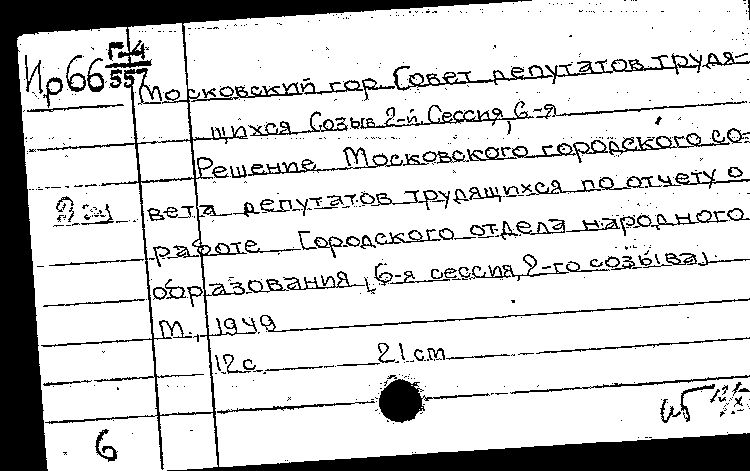 Ир66 Г-4/557
Московский гор. Совет депутатов трудя-
щихся Созыв 2-й. Сессия, 6-я
Решение Московского городского со-
2 эк
вета депутатов трудящихся по отчету о
работе Городского отдела народного
образования (6-я сессия, 2-го созыва).
М., 1949
12 с. 21 cm
6